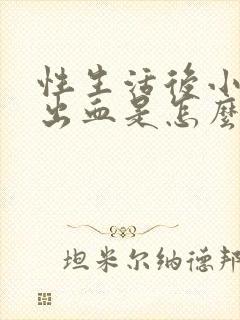 性生活後小
出血是怎麼
坦米尔纳德邦